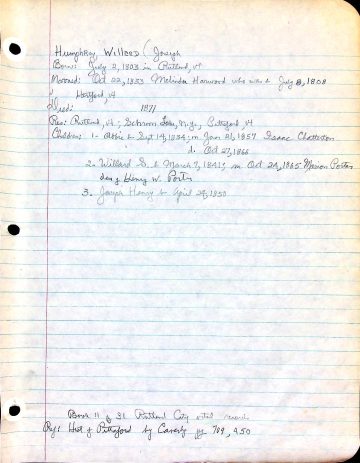 Humphrey, Willard (Joseph
Born: July 2, 1803 in Rutland, vt
Married: Oct 22, 1833 Melinda Harwood who was b July 8, 1808
Hartford, vt
Died: 1871
Res: Rutland, vt; N.Y.; Pittsford, vt
Children: 1- Abbie b Sept 14, 1834; m Jan 21, 1857 Isaac Chatterton
d. Oct 27, 1866
2. Willard S. b March 7, 1841; m Oct 24, 1865 Marion Porter
dau of Henry W. Porter
3. Joseph Henry b April 29, 1850
Book 11 p 31 Rutland City vital records
Ref: Hist of Pittsford by Caverly pg 709, 250